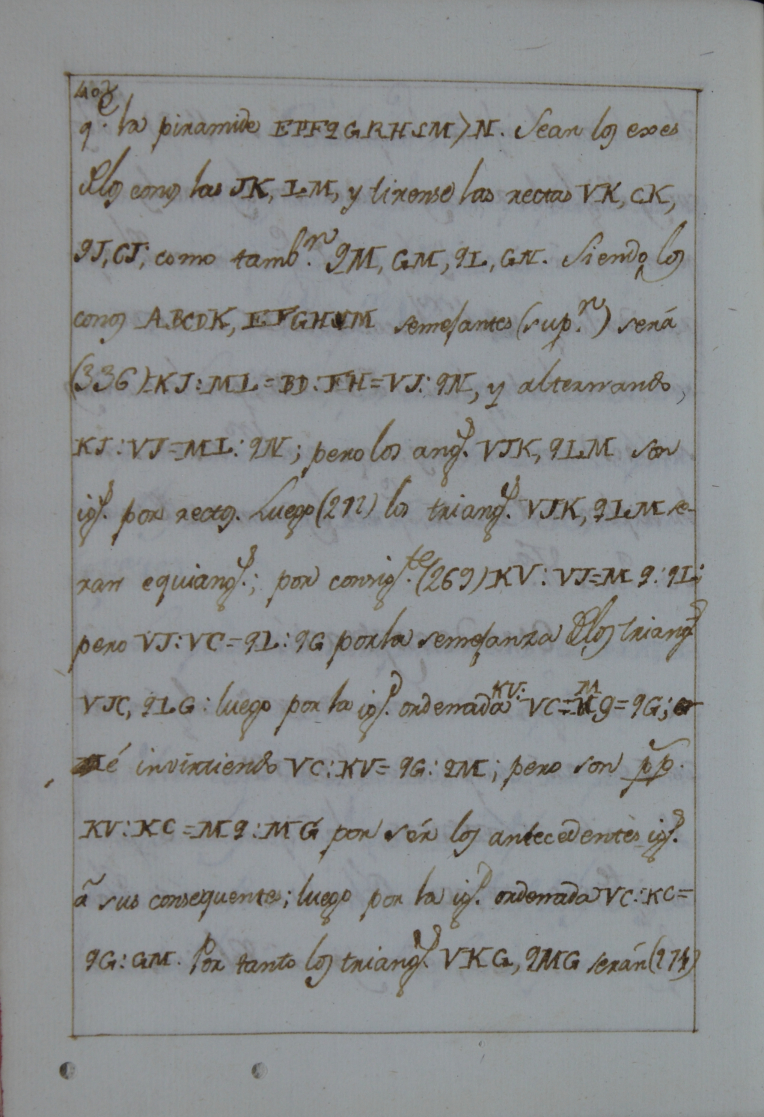 408
q.e la piramide EPFQGRHSM>N. Sean los exes
Dlos conos las JK, LM, y tirense las rectas VK, CK,
QJ, CJ; como tamb.n QM, GM, QL, GN. Siendo los
conos ABCDK, EFGHSM semejantes (sup.n) será
(336) KJ:ML=BD:FH=VJ:QN, y alternando,
KJ:VJ=ML:QN; pero los ang.s VJK, QLM son
ig.s por rectos. Luego (272) los triang.s VJK, QLM se-
ran equiang.s; por consig.te (269) KV:VJ=MQ:QL;
pero VJ:VC=QL:QG por la semejanza Dlos triang.s
VJC, QLG: luego por la ig.d ordenada KV:VC=MQ=QG;
é invirtiendo VC:KV=QG:QM; pero son pp.
KV:KC=MQ:MG por sér los antecedentes ig.s
á sus consequente; luego por la ig.d ordenada VC:KC=
QG:GM. Por tanto los triang.s VKG, QMG serán (274)